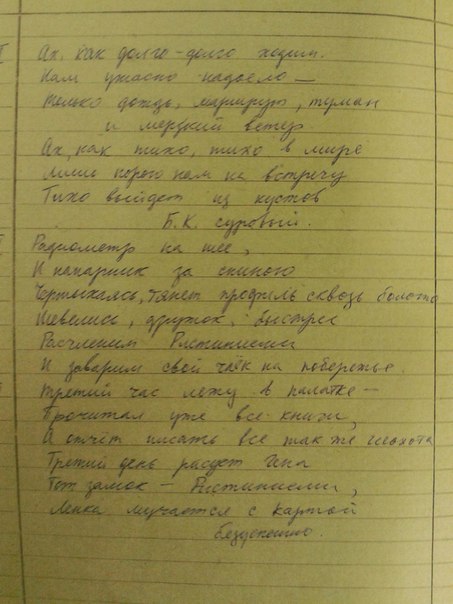 Ах, как долго-долго ходим.
Нам ужасно надоело —
Только дождь, маршрут, туман
и мерзкий ветер.
Ах, как тихо, тихо в мире
Лишь порою нам на встречу
Тихо выйдет из кустов
Б.К. суровый.
Радиометр на шее,
И напарник за спиною
Чертыхаясь, тянет профиль сквозь болота
Шевелись, дружок, быстрее
Расчленим Ристиниеми
И заварим свой чаёк на побережье.
Третий час лежу в палатке —
Прочитал уже все книги,
А отчёт писать всё так же неохота
Третий день рисует Гена
Тот замок — Ристиниеми,
Ленка мучается с картой
безуспешно.